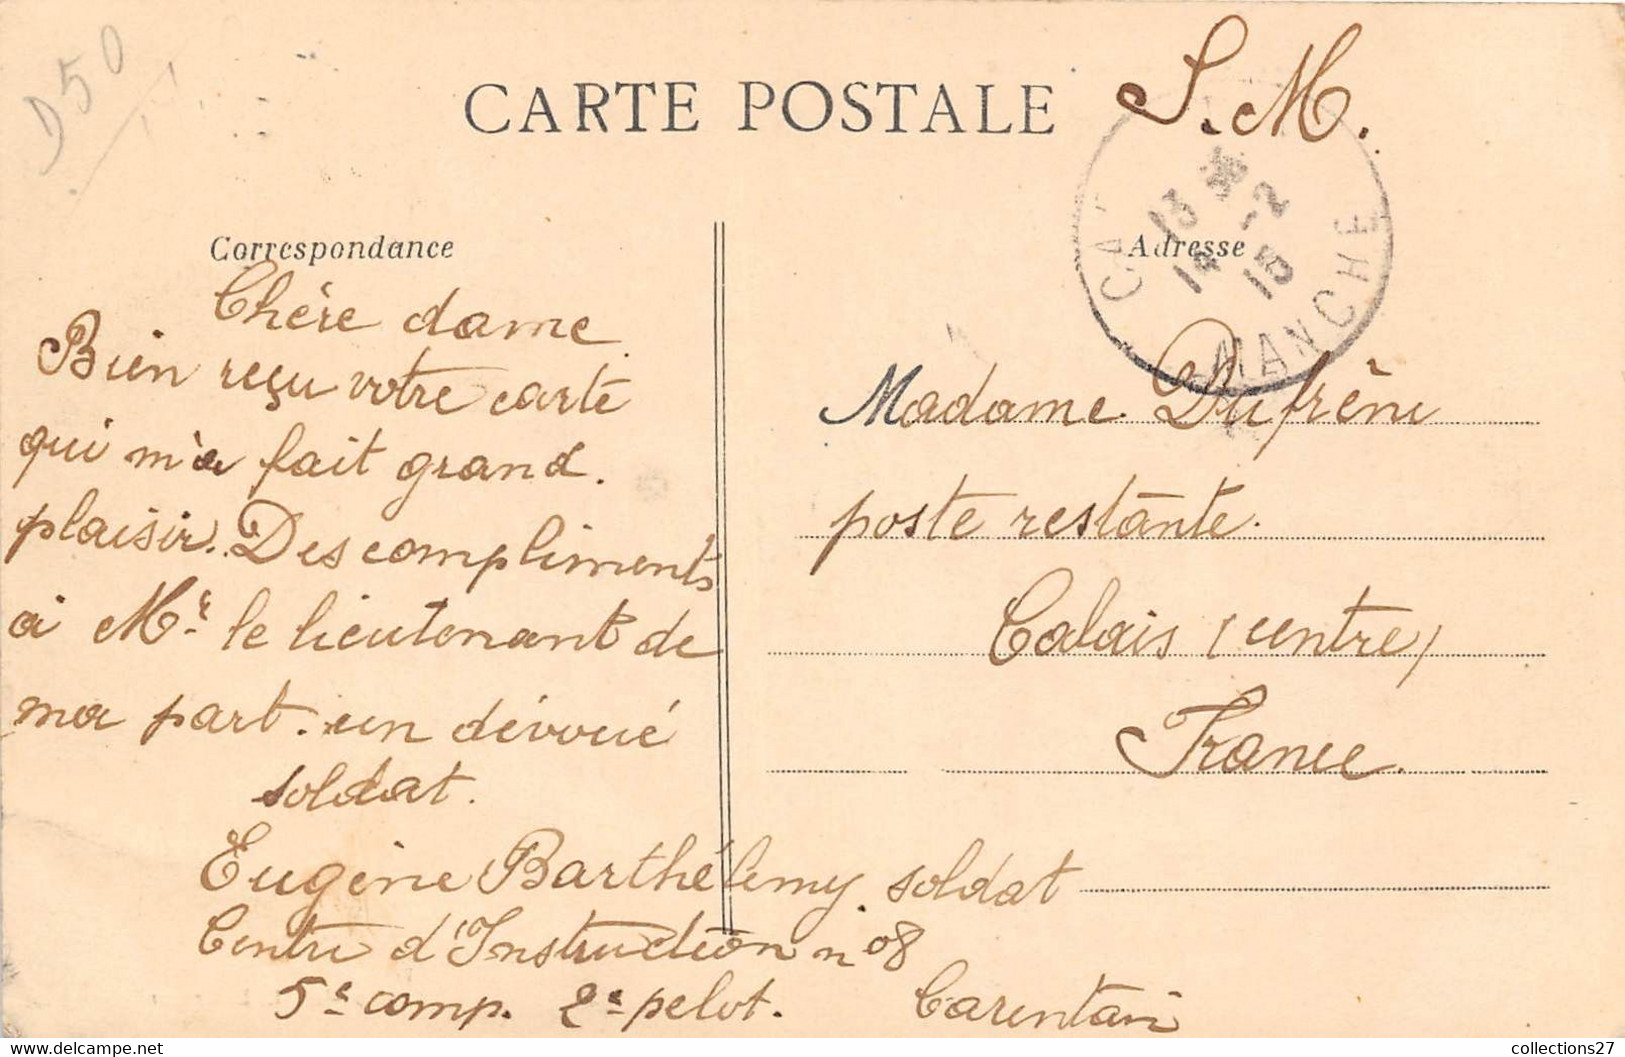 D50
CARTE POSTALE
S.M.
13 30
14 -2
15
MANCHE
Correspondance
Chère dame
Bien reçu votre carte
qui m'a fait grand.
plaisir. Des compliments
à Mr. le lieutenant de
ma part. un dévoué
soldat.
Eugène Barthélemy. soldat
Centre d'Instruction no8
5e comp. 2e pelot. Carentan
Adresse
Madame Dufrêne
poste restante.
Calais (centre)
France.
collections27